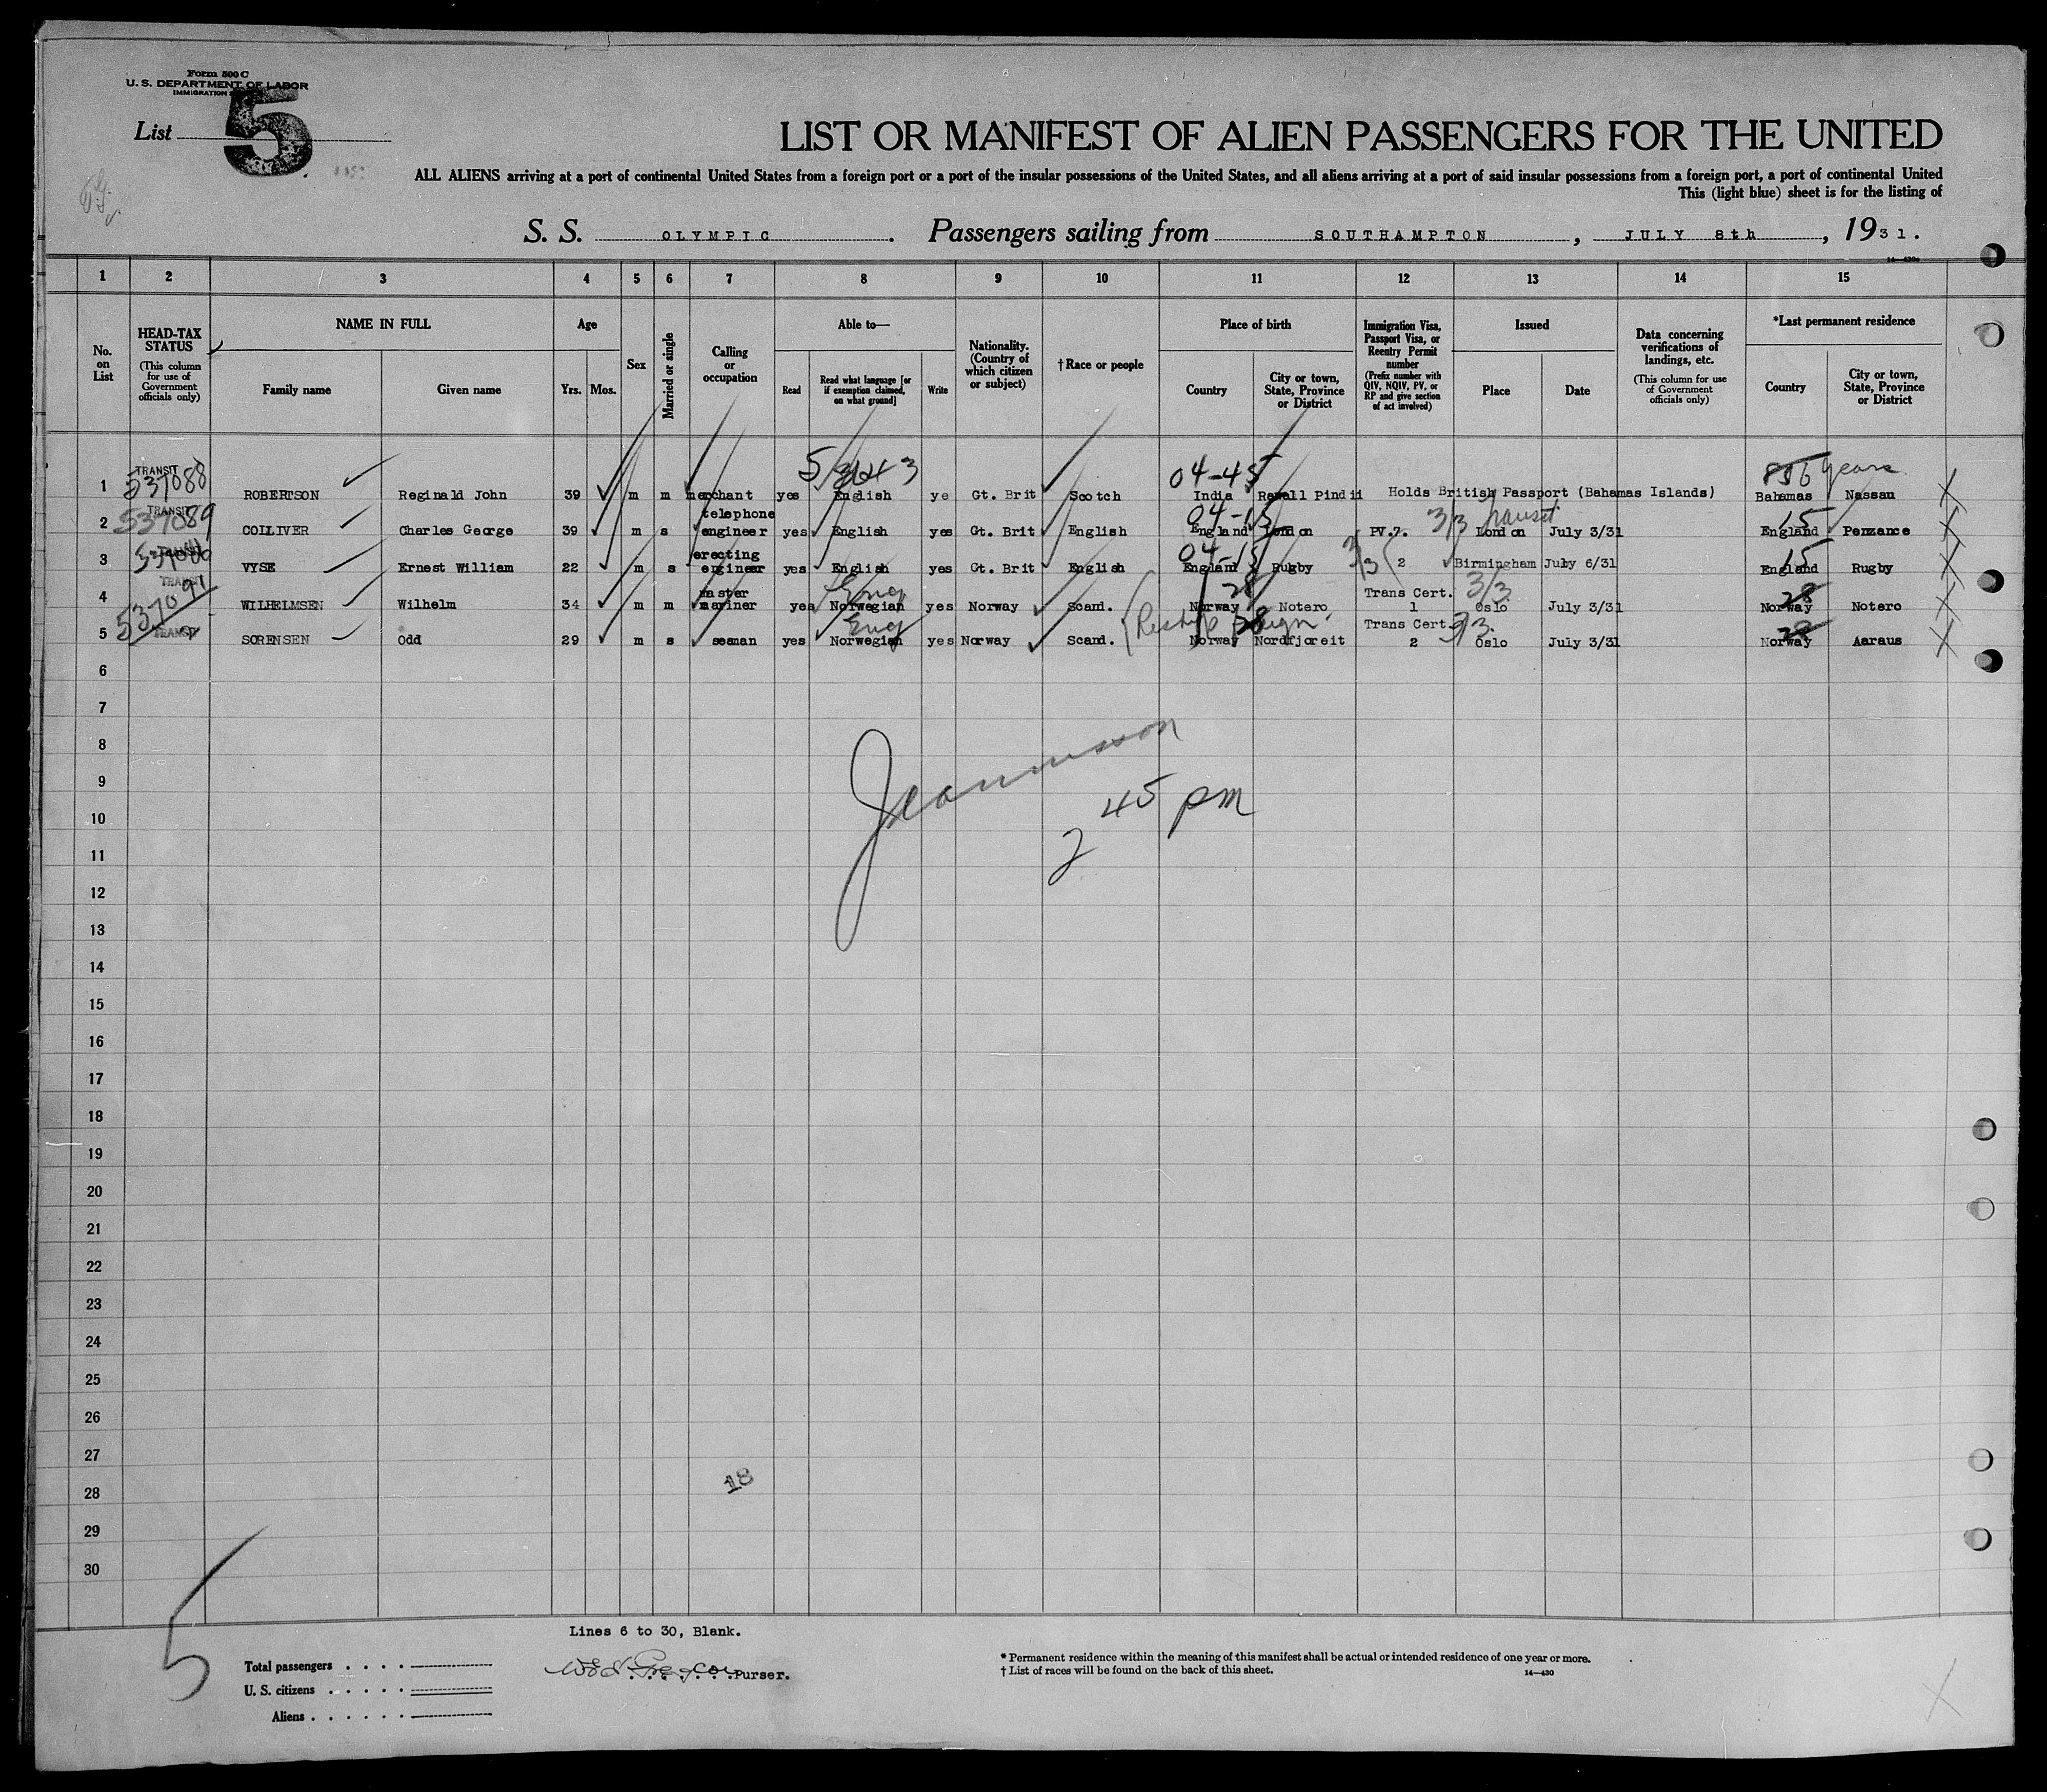 Form 500 C
U. S. DEPARTMENT OF LABOR
IMMIGRATION
List 5
LIST OR MANIFEST OF ALIEN PASSENGERS FOR THE UNITED
ALL ALIENS arriving at a port of continental United States from a foreign port or a port of the insular possessions of the United States, and all aliens arriving at a port of said insular possessions from a foreign port, a port of continental United
This (light blue) sheet is for the listing of
S. S. OLYMPIC . Passengers sailing from SOUTHAMPTON , JULY 8th , 1931.
14—430c
1 2 3 4 5 6 7 8 9 10 11 12 13 14 15
No. on List
HEAD-TAX STATUS
(This column for use of Government officials only)
NAME IN FULL
Family name Given name
Age
Yrs. Mos.
Sex
Married or single
Calling or occupation
Able to—
Read Read what language [or if exemption claimed, on what ground] Write
Nationality. (Country of which citizen or subject)
† Race or people
Place of birth
Country City or town, State, Province or District
Immigration Visa, Passport Visa, or Reentry Permit number
(Prefix number with QIV, NQIV, PV, or RP and give section of act involved)
Issued
Place Date
Data concerning verifications of landings, etc.
(This column for use of Government officials only)
*Last permanent residence
Country City or town, State, Province or District
TRANSIT 537088 04-45 years
1 ROBERTSON Reginald John 39 m m merchant yes English ye Gt. Brit Scotch India Rawell Pindii Holds British Passport (Bahamas Islands) Bahamas Nassau
TRANSIT 537089 telephone 04-15 3/3 transit 15
2 COLLIVER Charles George 39 m s engineer yes English yes Gt. Brit English England London PV.7. London July 3/31 England Penzance
TRANSIT erecting 04-15 3/3 15
3 VYSE Ernest William 22 m s engineer yes English yes Gt. Brit English England Rugby 2 Birmingham July 6/31 England Rugby
TRANSIT 537091 master Eng 28 Trans Cert. 3/3 28
4 WILHELMSEN Wilhelm 34 m m mariner yes Norwegian yes Norway Scand. Norway Notero 1 Oslo July 3/31 Norway Notero
TRANSIT Eng Reship foreign 28 Trans Cert. 3/3. 28
5 SORENSEN Odd 29 m s seaman yes Norwegian yes Norway Scand. Norway Nordfjoreit 2 Oslo July 3/31 Norway Aaraus
6
7
8
9
2 45 pm
10
11
12
13
14
15
16
17
18
19
20
21
22
23
24
25
26
27
18
28
29
30
5
Lines 6 to 30, Blank.
Total passengers
U. S. citizens
Aliens
Purser.
* Permanent residence within the meaning of this manifest shall be actual or intended residence of one year or more.
† List of races will be found on the back of this sheet.
14—430